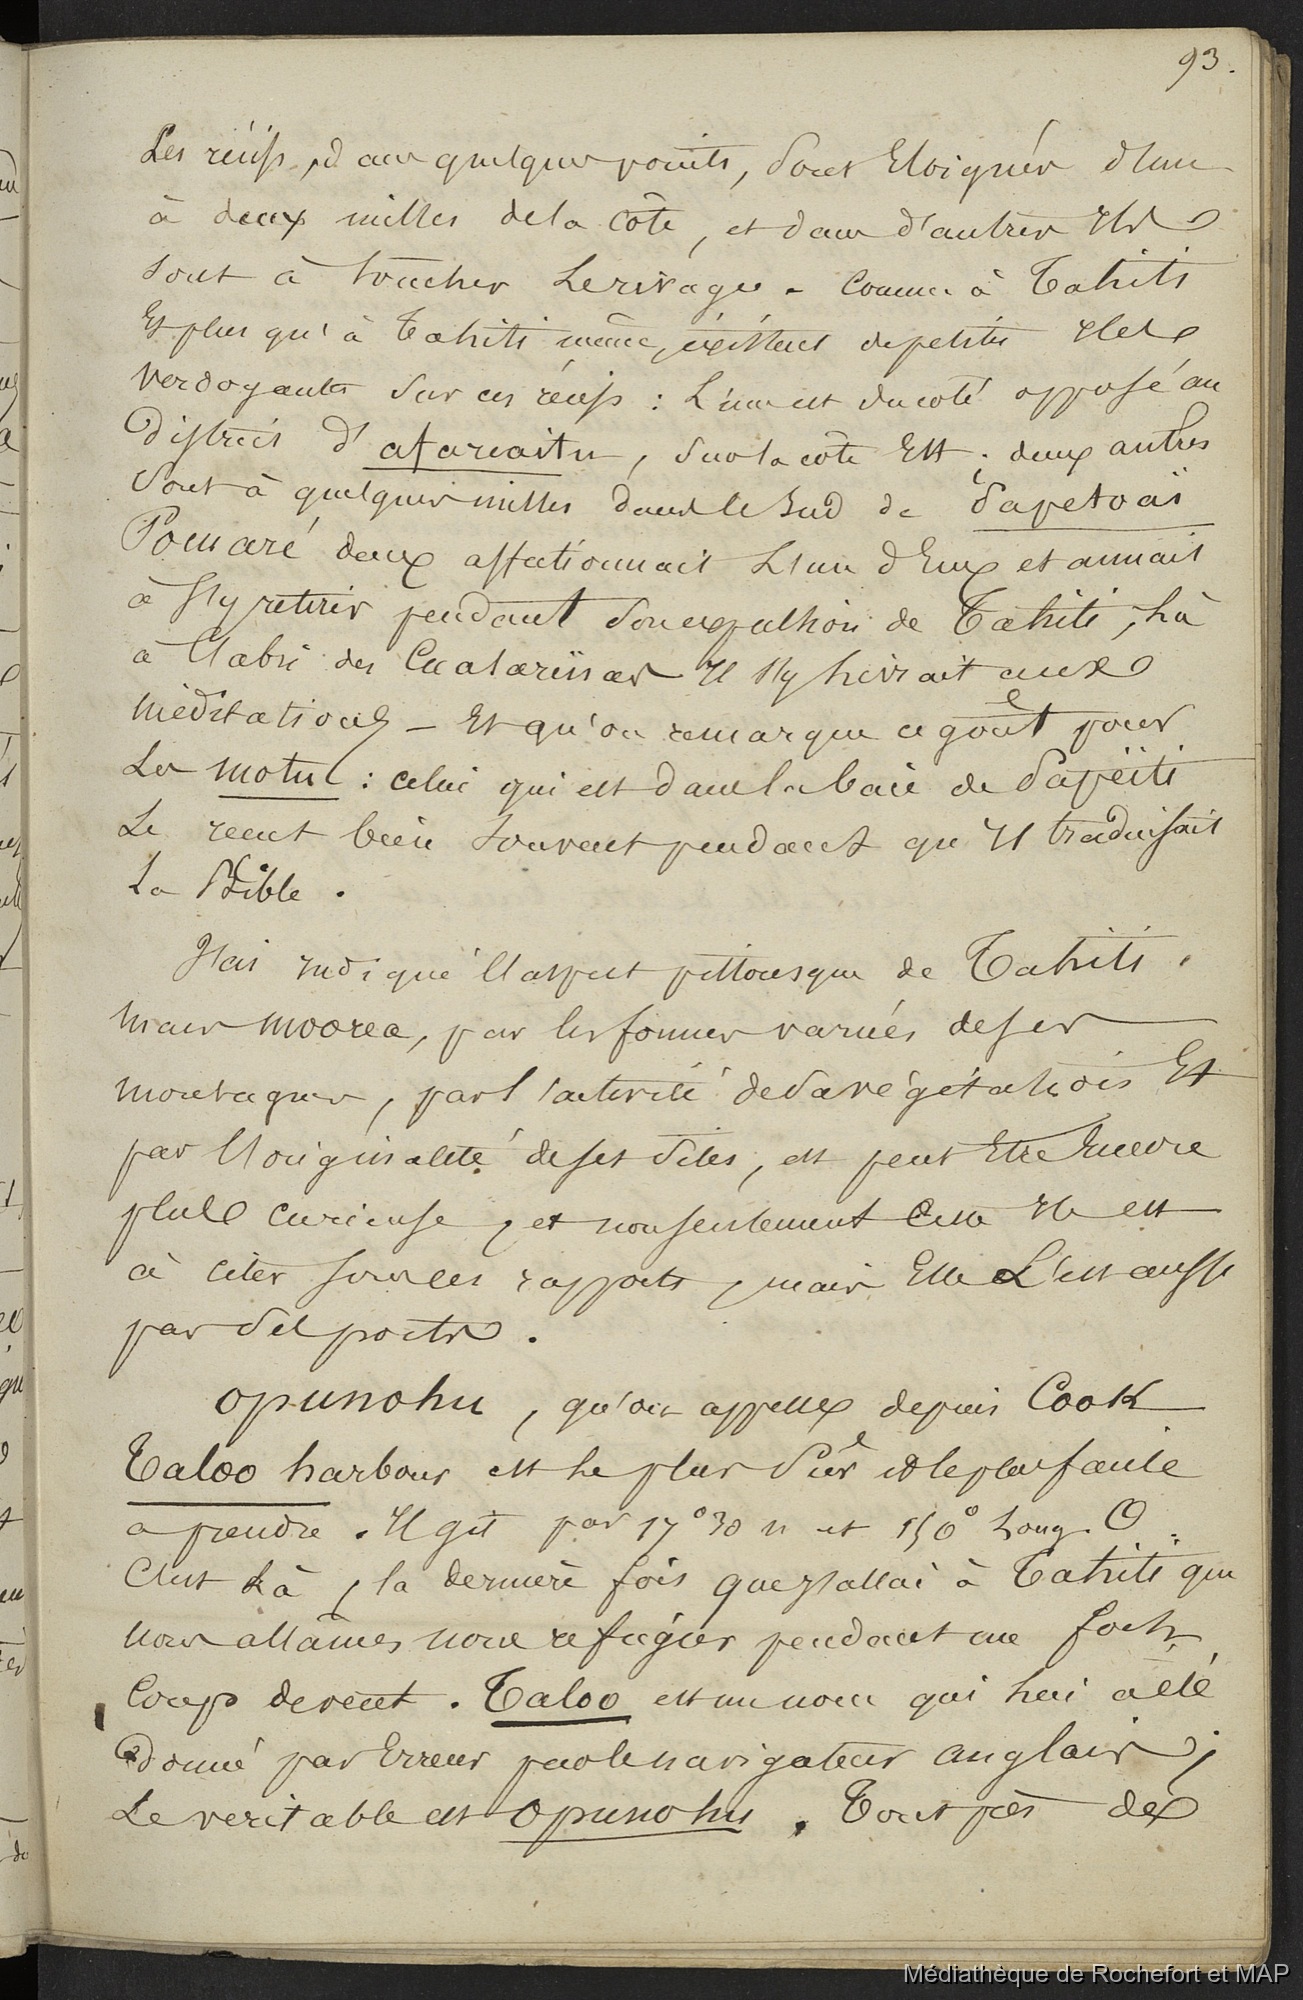 93.
Les récifs, dans quelques points, sont Eloignés d'un
à deux milles de la côte, et dans d'autres Ils
sont à toucher le rivage. Comme à Tahiti
Et plus qu'à Tahiti même, existent de petits Ilets
verdoyants sur ces récifs : L'un est du coté opposé au
District d'afareaitu, sur la côte Est ; deux autres
sont à quelques milles dans le Sud de Papetoaï
Pomaré deux affectionnait L'un d'Eux et aimait
à s'y retirer pendant son expulsion de Tahiti, Là
à l'abri des Il s'y livrait aux
méditations – Et qu'on remarque ce goût pour
Les motu : celui qui est dans la baie de Papeïti
Le reçut bien souvent pendant qu'Il traduisait
La Bible.
J'ai indiqué l'aspect pittoresque de Tahiti.
mais moorea, par les formes variées de ses
montagnes, par l'activité de sa végétation Et
par l'originalité de ses sites, est peut Etre Encore
plus curieuse, et non seulement Cette Ile est
à citer sous ces rapports, mais Elle L'est aussi
par ses ports.
opunohu, qu'on appelle depuis Cook
Taloo harbour est le plus sûr et le plus facile
a prendre. Il git par 17° 30 n et 150° Long. O.
C'est Là, la dernière fois que J'allai à Tahiti que
nous allâmes nous refugier pendant un fort
Coup de vent. Taloo est un nom qui lui a été
donné par Erreur par le navigateur anglais ;
Le veritable est Opunohu. Tout près de
Médiathèque de Rochefort et MAP